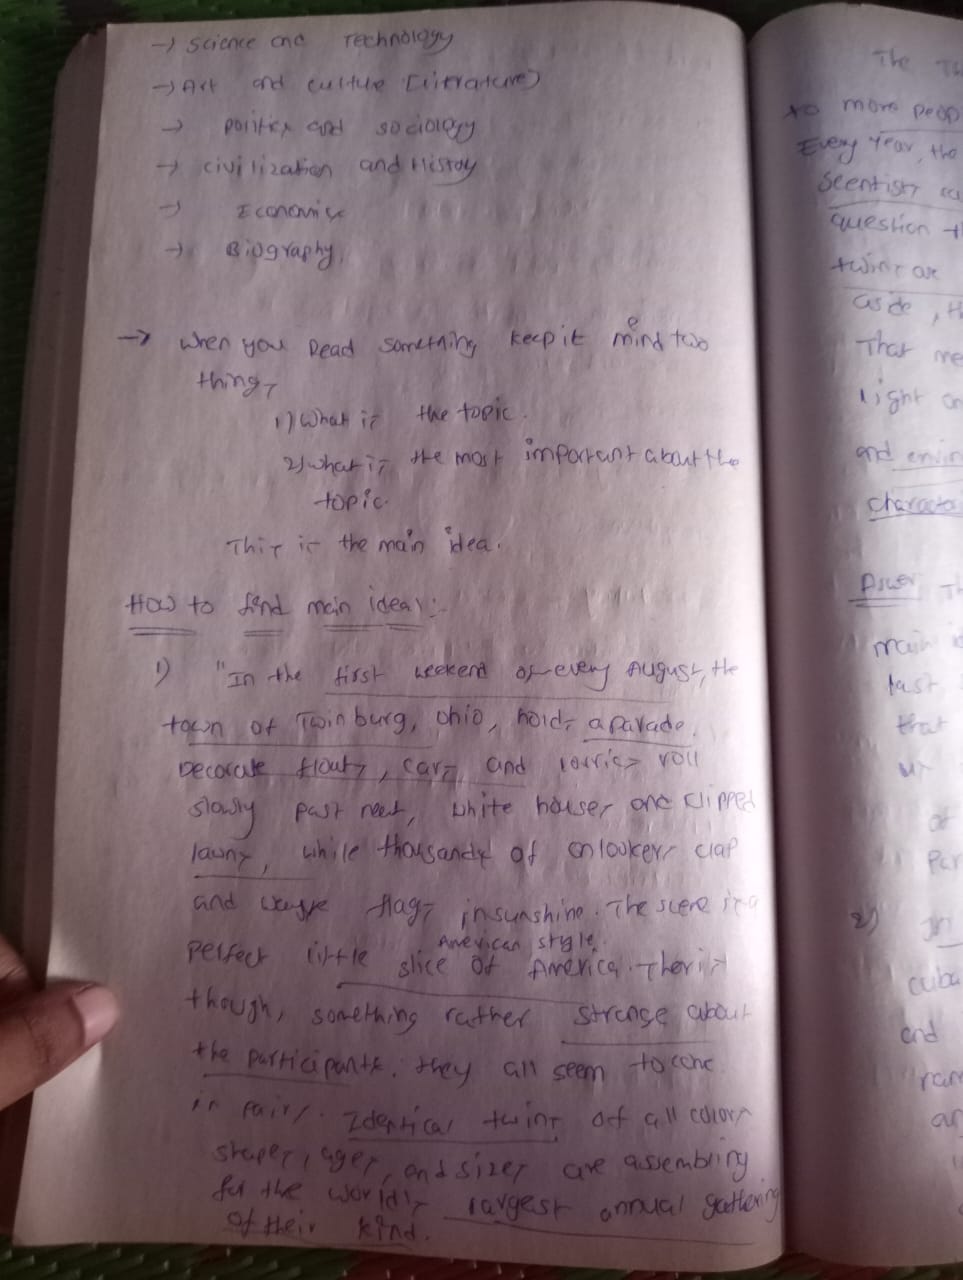 → Science and Technology
→ Art and culture (Literature)
→ Politics and sociology
→ civilization and History
→ Economics
→ Biography.
→ when you Read something keep it mind two
things
1) What is the topic.
2) what is the most important about the
topic.
This is the main idea.
How to find main idea:-
1) "In the first weekend of every August, the
town of Twinburg, Ohio, holds a parade.
Decorate floats, cars, and lorries roll
slowly past neat, white houses and clipped
lawns, while thousands of onlookers clap
and wave flags in sunshine. The scene is a
perfect little slice of America. Ther is
American style.
though, something rather strange about
the participants. they all seem to come
in pairs. Identical twins of all colors
shapes, ages, and sizes are assembling
for the world's largest annual gathering
of their kind.
The
to more peop
Every year, the
Scentists ca
question th
twins are
aside, th
That me
light on
and envir
character
Answer Th
main id
last
that
of
2) In
cuba
and
ran